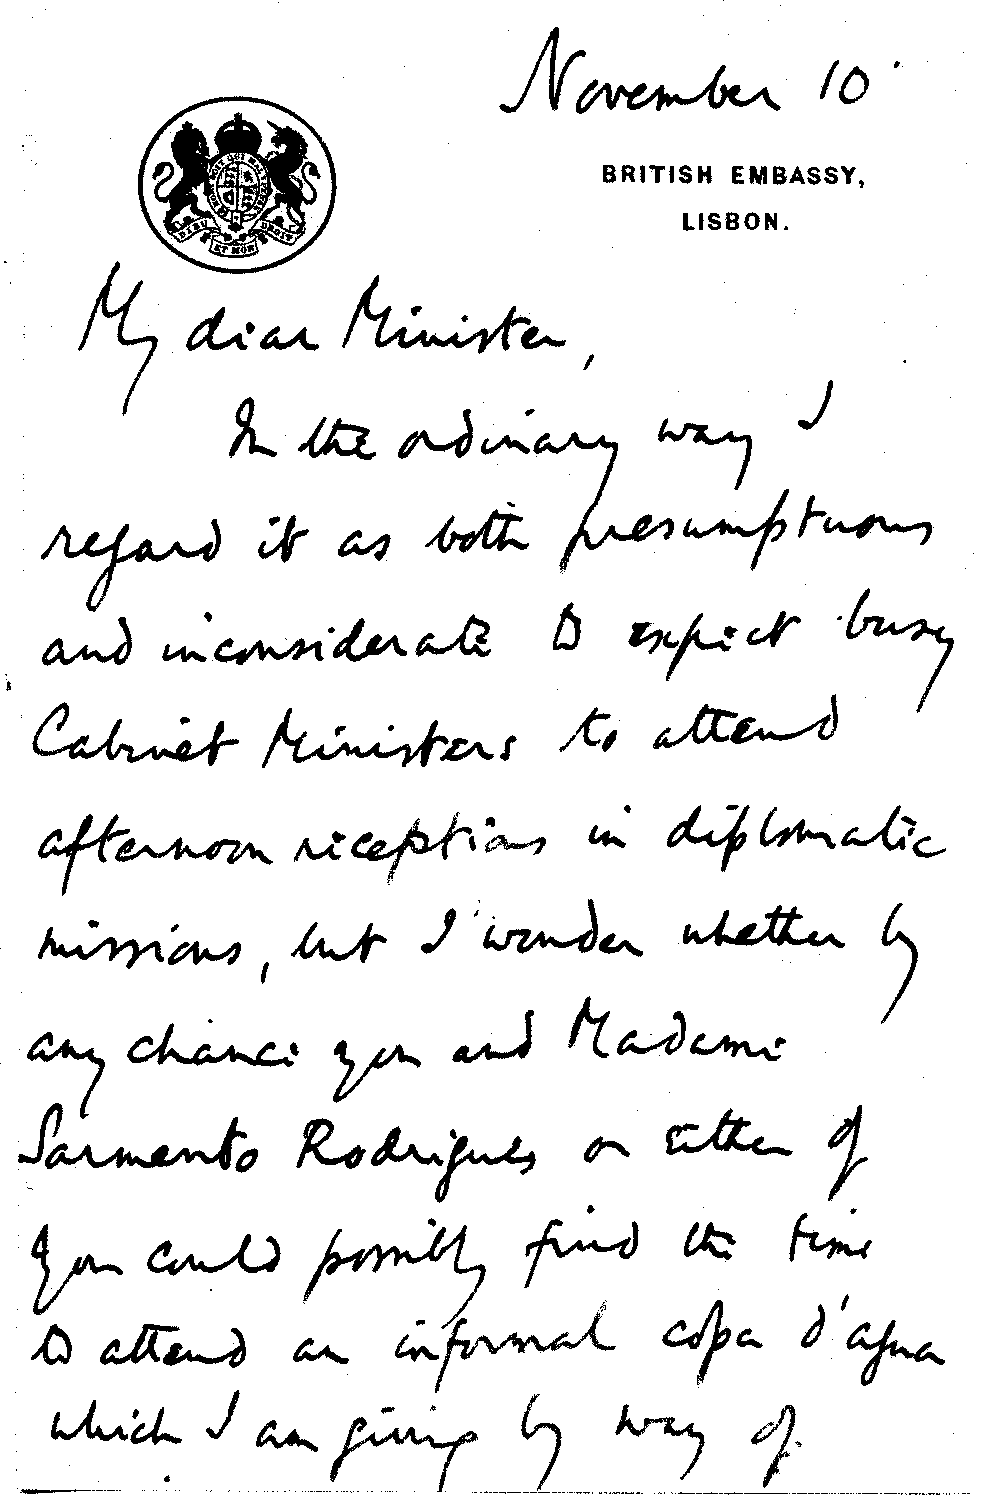 November 10
BRITISH EMBASSY,
LISBON.
DIEU ET MON DROIT
My dear Minister,
In the ordinary way I
regard it as both presumptuous
and inconsiderate to expect busy
Cabinet Ministers to attend
afternoon receptions in diplomatic
missions, but I wonder whether by
any chance you and Madame
Sarmento Rodrigues or either of
you could possibly find the time
to attend an informal copa d'agua
which I am giving by way of